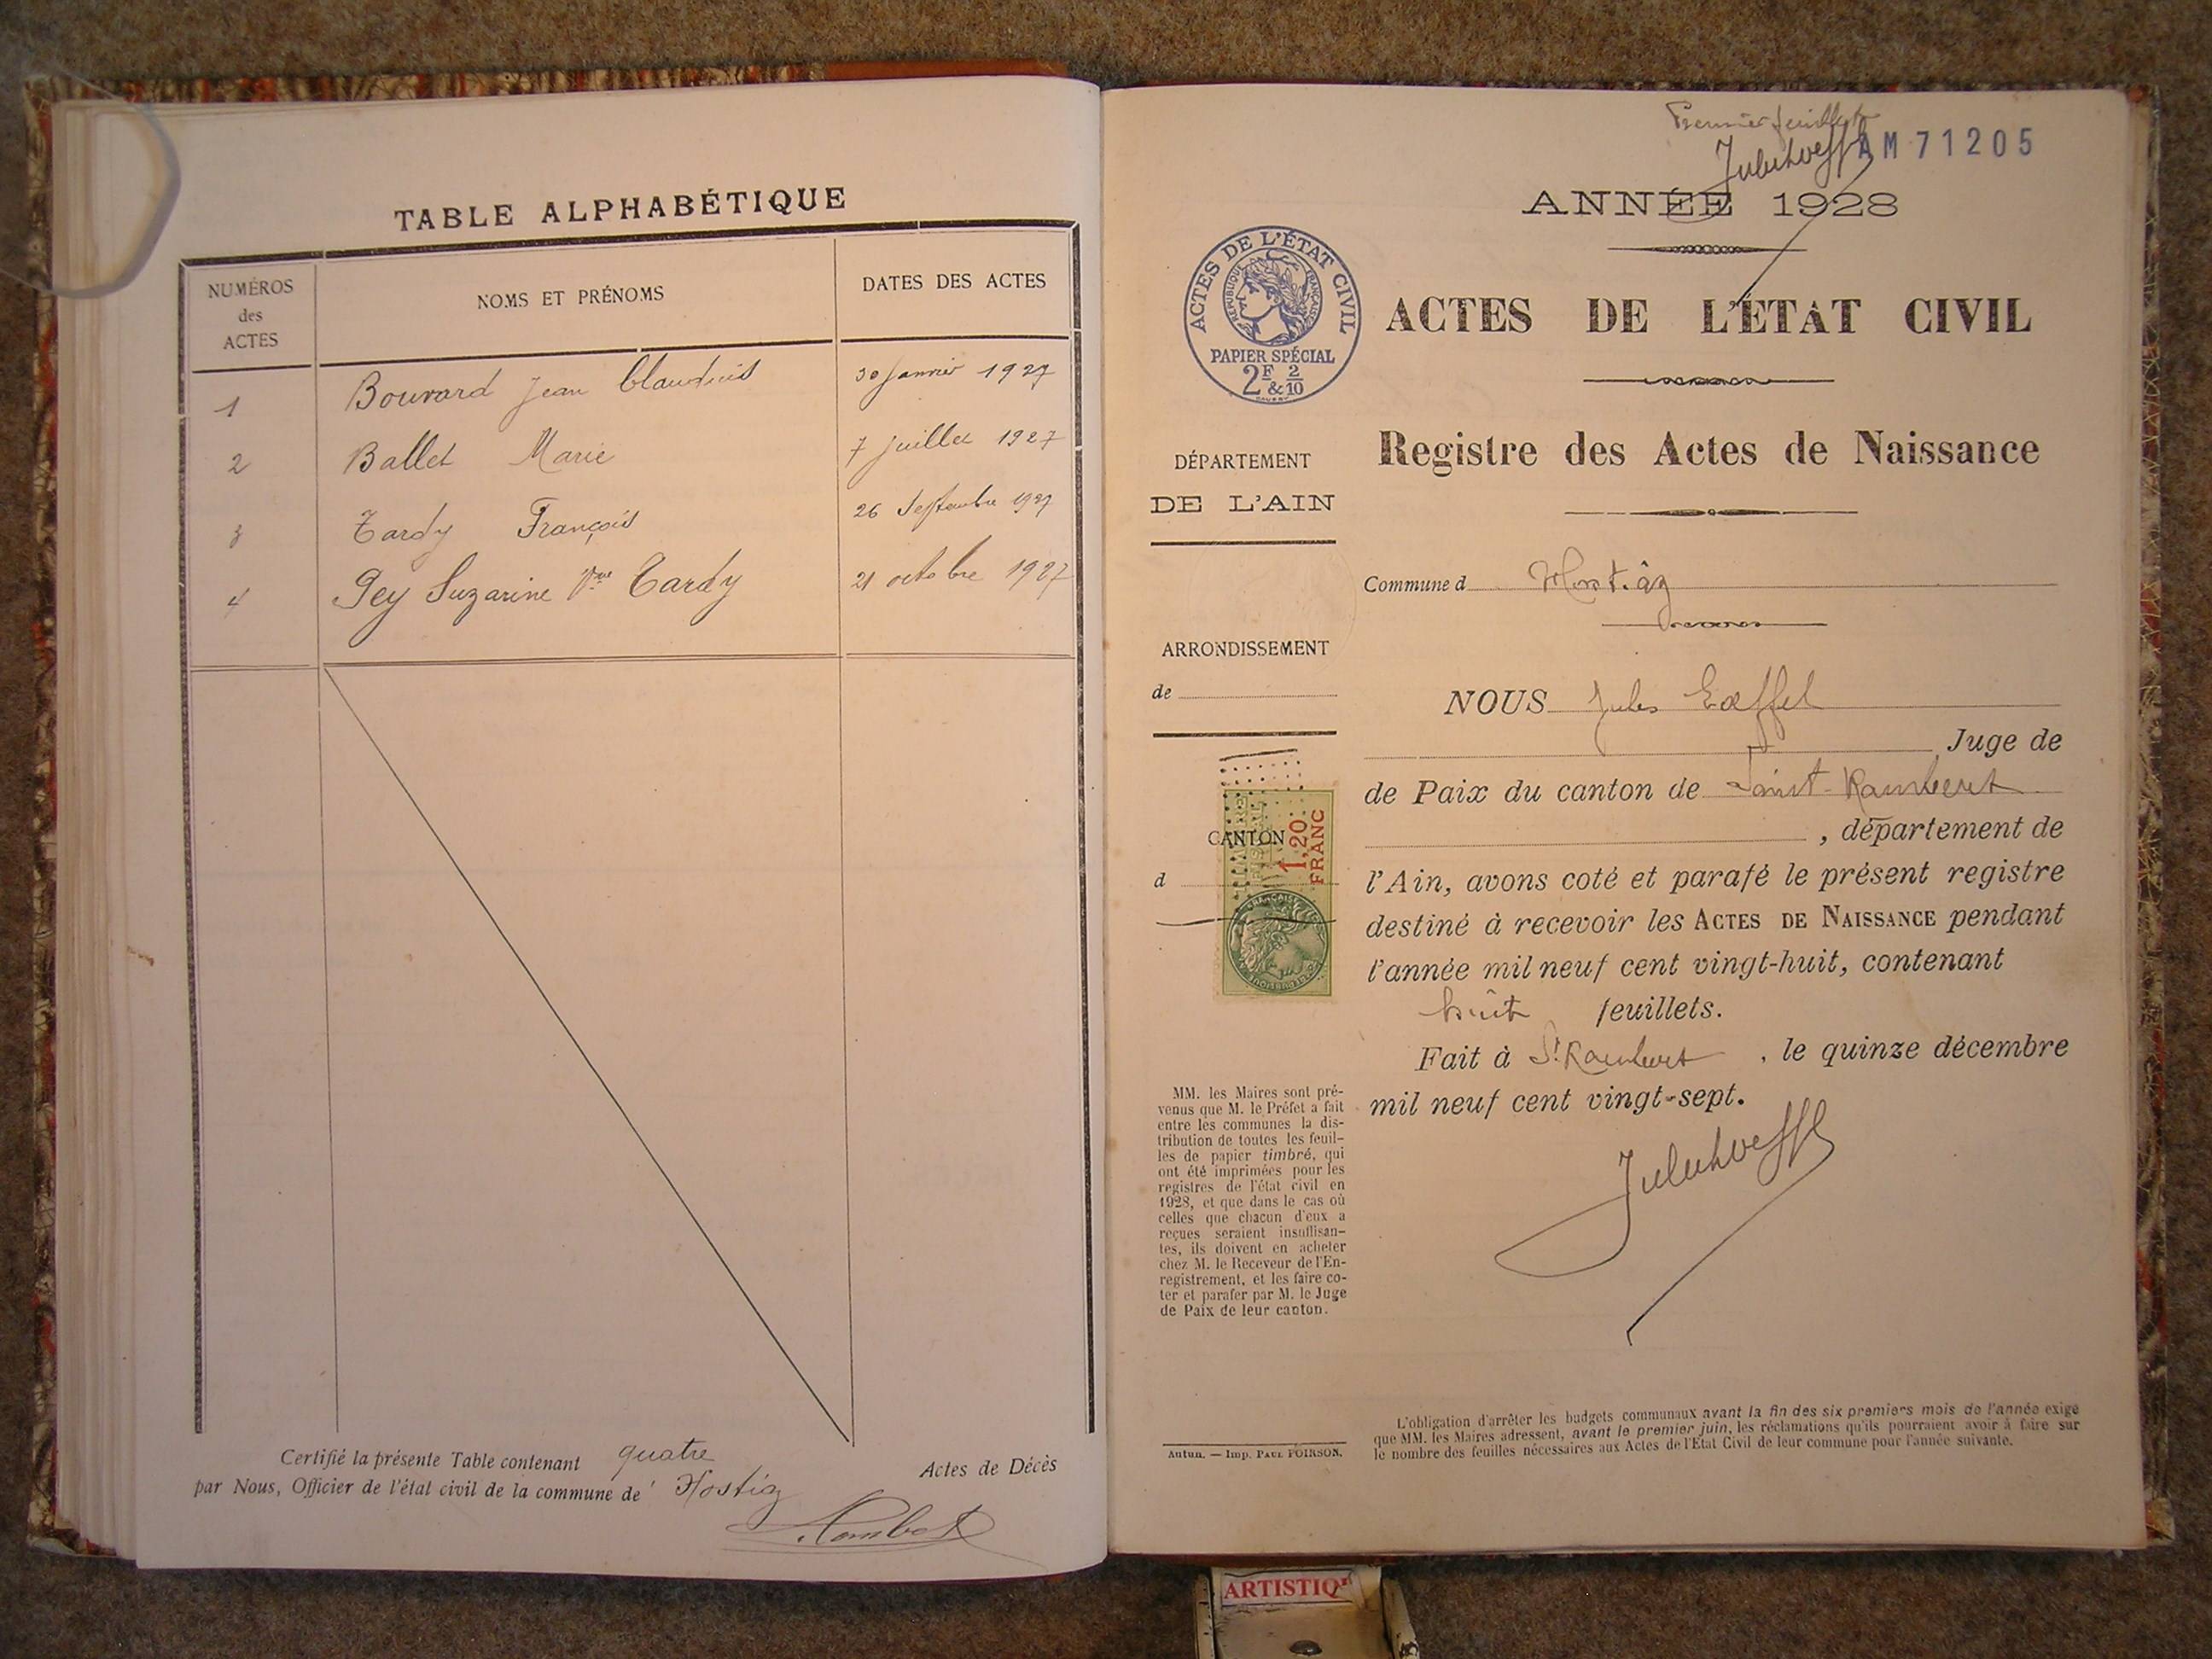 TABLE ALPHABÉTIQUE
NUMÉROS des ACTES
NOMS ET PRÉNOMS
DATES DES ACTES
1 Bouvard Jean Claudius 30 Janvier 1927
2 Ballet Marie 7 Juillet 1927
3 Tardy François 26 Septembre 1927
4 Pey Suzanne Vve Tardy 21 octobre 1927
Certifié la présente Table contenant quatre Actes de Décès
par Nous, Officier de l'état civil de la commune de Hostiaz
Premier feuillet
AM 71205
ANNÉE 1928
ACTES DE L'ÉTAT CIVIL
RÉPUBLIQUE FRANÇAISE
PAPIER SPÉCIAL
2F 2/10
&
ACTES DE L'ÉTAT CIVIL
Registre des Actes de Naissance
DÉPARTEMENT
DE L'AIN
Commune d Hostiaz
ARRONDISSEMENT
de
NOUS Jules
Juge de
de Paix du canton de Saint-Rambert
, département de
CANTON
d
1,20
FRANC
l'Ain, avons coté et parafé le présent registre
destiné à recevoir les ACTES DE NAISSANCE pendant
l'année mil neuf cent vingt-huit, contenant
huit feuillets.
Fait à St Rambert, le quinze décembre
mil neuf cent vingt-sept.
MM. les Maires sont pré-
venus que M. le Préfet a fait
entre les communes la dis-
tribution de toutes les feuil-
les de papier timbré, qui
ont été imprimées pour les
registres de l'état civil en
1928, et que dans le cas où
celles que chacun d'eux a
reçues seraient insuffisan-
tes, ils doivent en acheter
chez M. le Receveur de l'En-
registrement, et les faire co-
ter et parafer par M. le Juge
de Paix de leur canton.
Autun. — Imp. PAUL POIRSON.
L'obligation d'arrêter les budgets communaux avant la fin des six premiers mois de l'année exige
que MM. les Maires adressent, avant le premier juin, les réclamations qu'ils pourraient avoir à faire sur
le nombre des feuilles nécessaires aux Actes de l'État Civil de leur commune pour l'année suivante.
ARTISTIQ